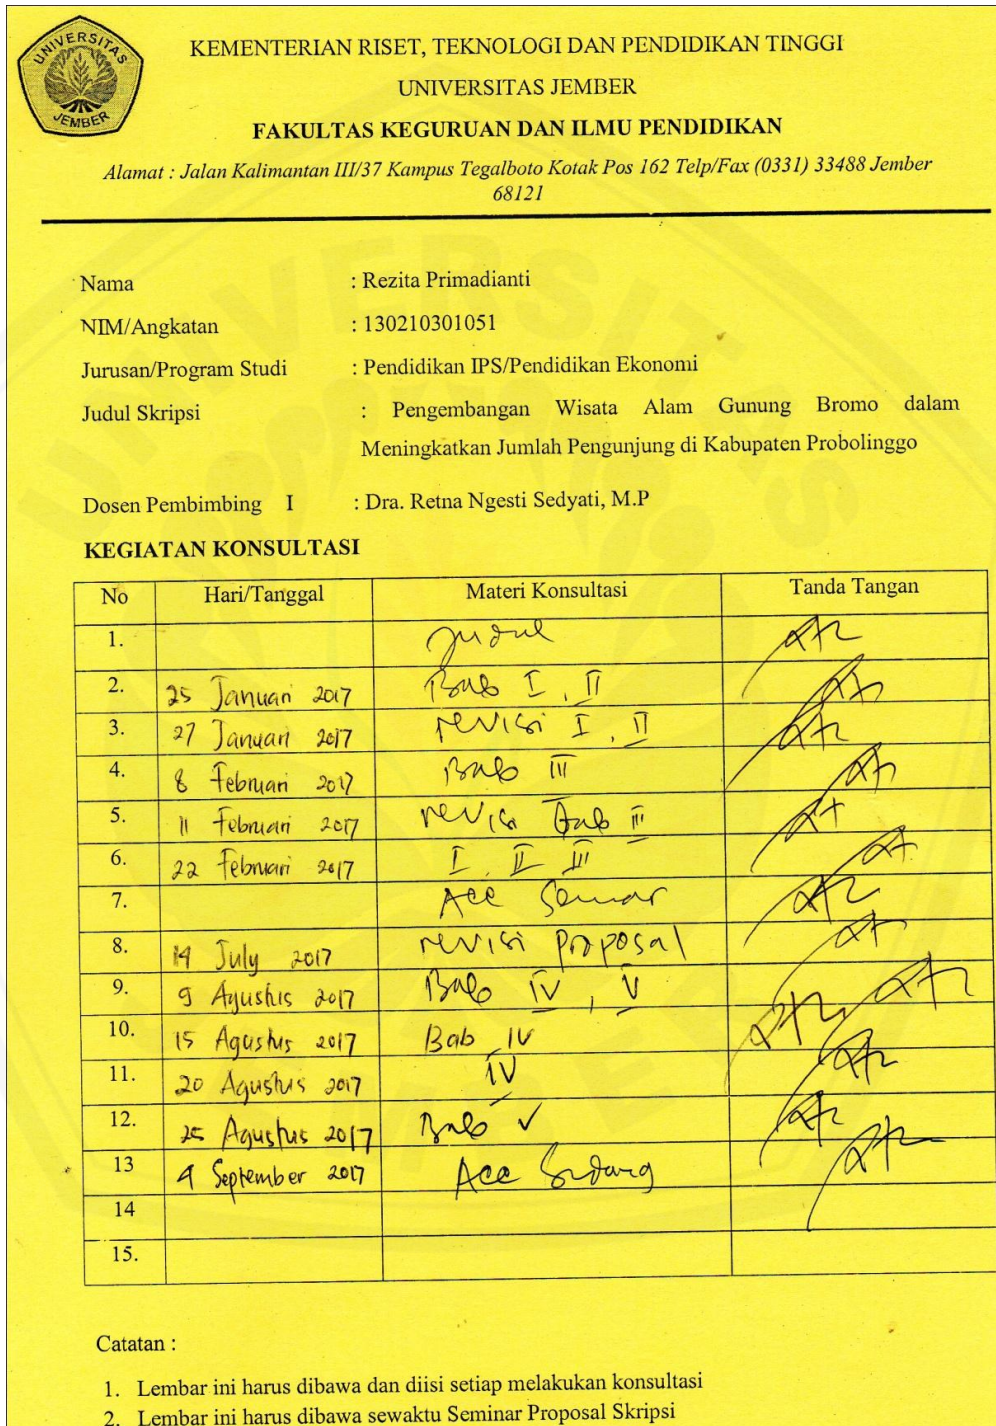 UNIVERSITAS
JEMBER
KEMENTERIAN RISET, TEKNOLOGI DAN PENDIDIKAN TINGGI
UNIVERSITAS JEMBER
FAKULTAS KEGURUAN DAN ILMU PENDIDIKAN
Alamat : Jalan Kalimantan III/37 Kampus Tegalboto Kotak Pos 162 Telp/Fax (0331) 33488 Jember
68121
Nama : Rezita Primadianti
NIM/Angkatan : 130210301051
Jurusan/Program Studi : Pendidikan IPS/Pendidikan Ekonomi
Judul Skripsi : Pengembangan Wisata Alam Gunung Bromo dalam
Meningkatkan Jumlah Pengunjung di Kabupaten Probolinggo
Dosen Pembimbing I : Dra. Retna Ngesti Sedyati, M.P
KEGIATAN KONSULTASI
No Hari/Tanggal Materi Konsultasi Tanda Tangan
1. Judul
2. 25 Januari 2017 Bab I, II
3. 27 Januari 2017 revisi I, II
4. 8 Februari 2017 Bab III
5. 11 Februari 2017 revisi Bab III
6. 22 Februari 2017 I, II III
7. Acc Seminar
8. 14 July 2017 revisi proposal
9. 9 Agustus 2017 Bab IV, V
10. 15 Agustus 2017 Bab IV
11. 20 Agustus 2017 IV
12. 25 Agustus 2017 Bab V
13 4 September 2017 Acc Sidang
14
15.
Catatan :
1. Lembar ini harus dibawa dan diisi setiap melakukan konsultasi
2. Lembar ini harus dibawa sewaktu Seminar Proposal Skripsi